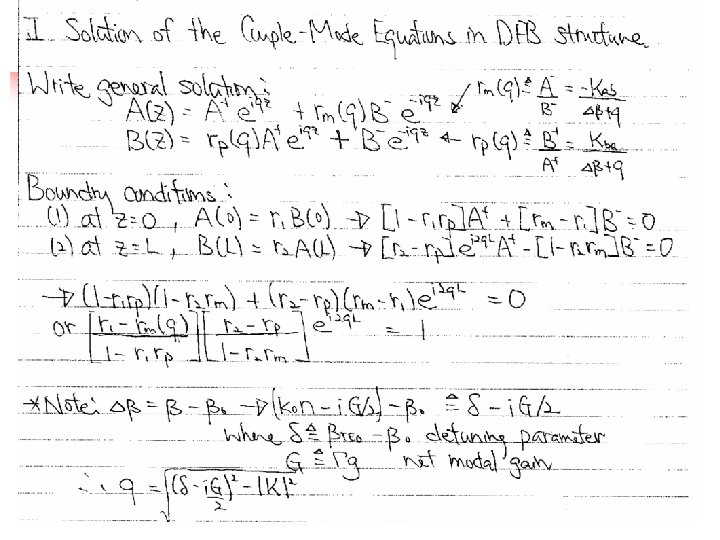 I. Solution of the Couple-Mode Equations in DFB structure.
Write general solution:
A(z) = A⁺ e^{iqz} + r_m(q) B⁻ e^{-iqz} ↙ r_m(q) ≜ A⁻/B⁻ = -K_ab/(Δβ+q)
B(z) = r_p(q) A⁺ e^{iqz} + B⁻ e^{-iqz} ← r_p(q) ≜ B⁺/A⁺ = K_ba/(Δβ+q)
Boundry conditions:
(1) at z=0, A(0) = r₁ B(0) → [1 - r₁r_p] A⁺ + [r_m - r₁] B⁻ = 0
(2) at z=L, B(L) = r₂ A(L) → [r₂ - r_p] e^{i2qL} A⁺ - [1 - r₂r_m] B⁻ = 0
→ (1 - r₁r_p)(1 - r₂r_m) + (r₂ - r_p)(r_m - r₁) e^{i2qL} = 0
or [(r₁ - r_m(q))/(1 - r₁r_p)] [(r₂ - r_p)/(1 - r₂r_m)] e^{i2qL} = 1
*Note: Δβ = β - β₀ → (k₀n - iG/2) - β₀ ≜ δ - iG/2
where δ ≜ β_TE0 - β₀ detuning parameter
G ≜ Γg net modal gain
∴ q = √((δ - iG/2)² - |K|²)